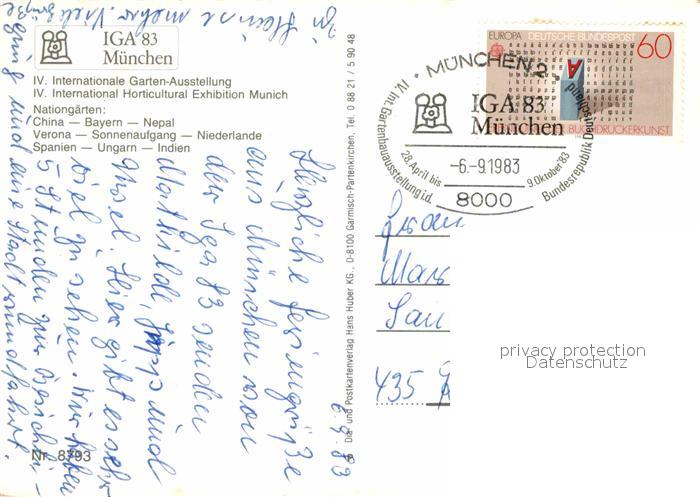 IGA 83
München
IV. Internationale Garten-Ausstellung
IV. International Horticultural Exhibition Munich
Nationgärten:
China — Bayern — Nepal
Verona — Sonnenaufgang — Niederlande
Spanien — Ungarn — Indien
6.9.83
Herzliche Feriengrüße
aus München von
der Iga 83 senden
Mathilde, Jupp und
Es gibt sehr
viel zu sehen. Wir haben
5 Stunden zur Besichti-
gung und eine Stadtrundfahrt.
Viele Grüße
Nr. 8793
Dia- und Postkartenverlag Hans Huber KG., D-8100 Garmisch-Partenkirchen, Tel. 0 88 21 / 5 90 48
EUROPA DEUTSCHE BUNDESPOST
60
A
BUCHDRUCKERKUNST
MÜNCHEN 2
IV. Int. Gartenbauausstellung i.d. Bundesrepublik Deutschland
IGA 83
München
28. April bis 9. Oktober '83
-6.-9.1983
8000
Frau
435
privacy protection
Datenschutz